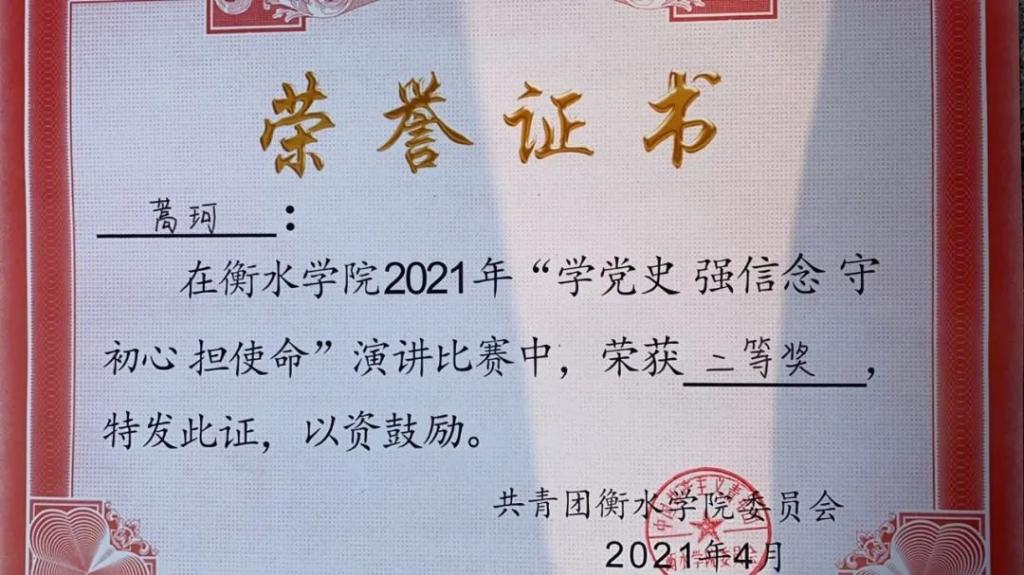 荣誉证书
蒿珂：
在衡水学院2021年“学党史 强信念 守
初心 担使命”演讲比赛中，荣获二等奖，
特发此证，以资鼓励。
共青团衡水学院委员会
2021年4月